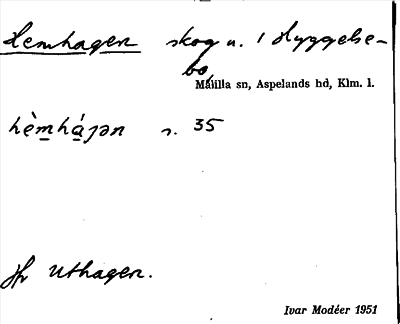 Hemhagen skog u. 1 Hyggelse-
bo
Målilla sn, Aspelands hd, Klm. l.
hèmhájən s. 35
Jfr Uthagen.
Ivar Modéer 1951